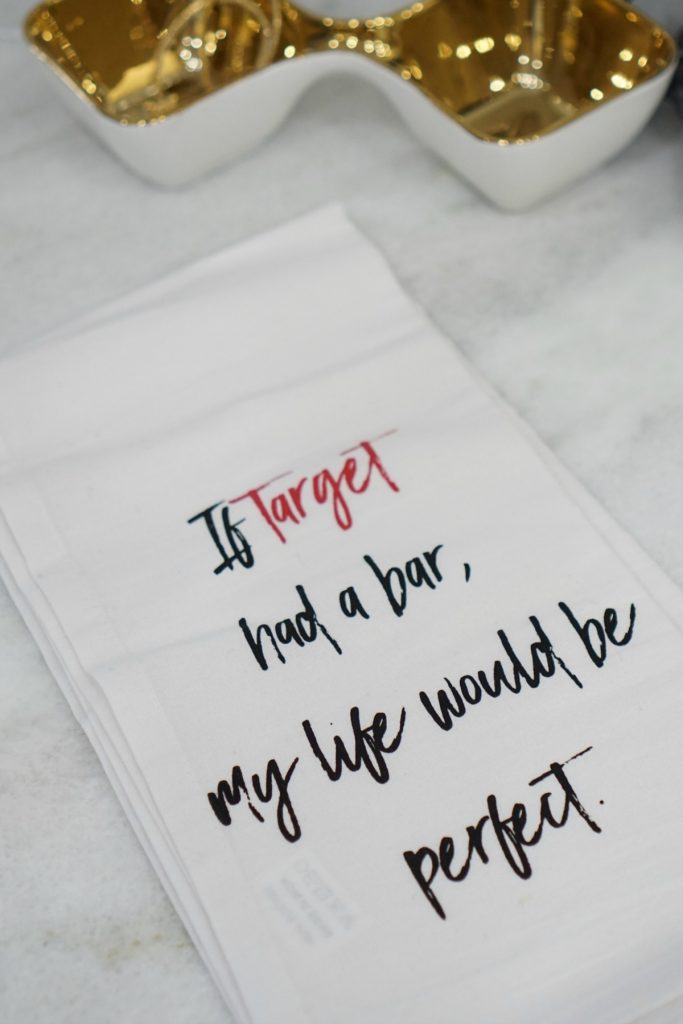 If Target
had a bar,
my life would be
perfect.